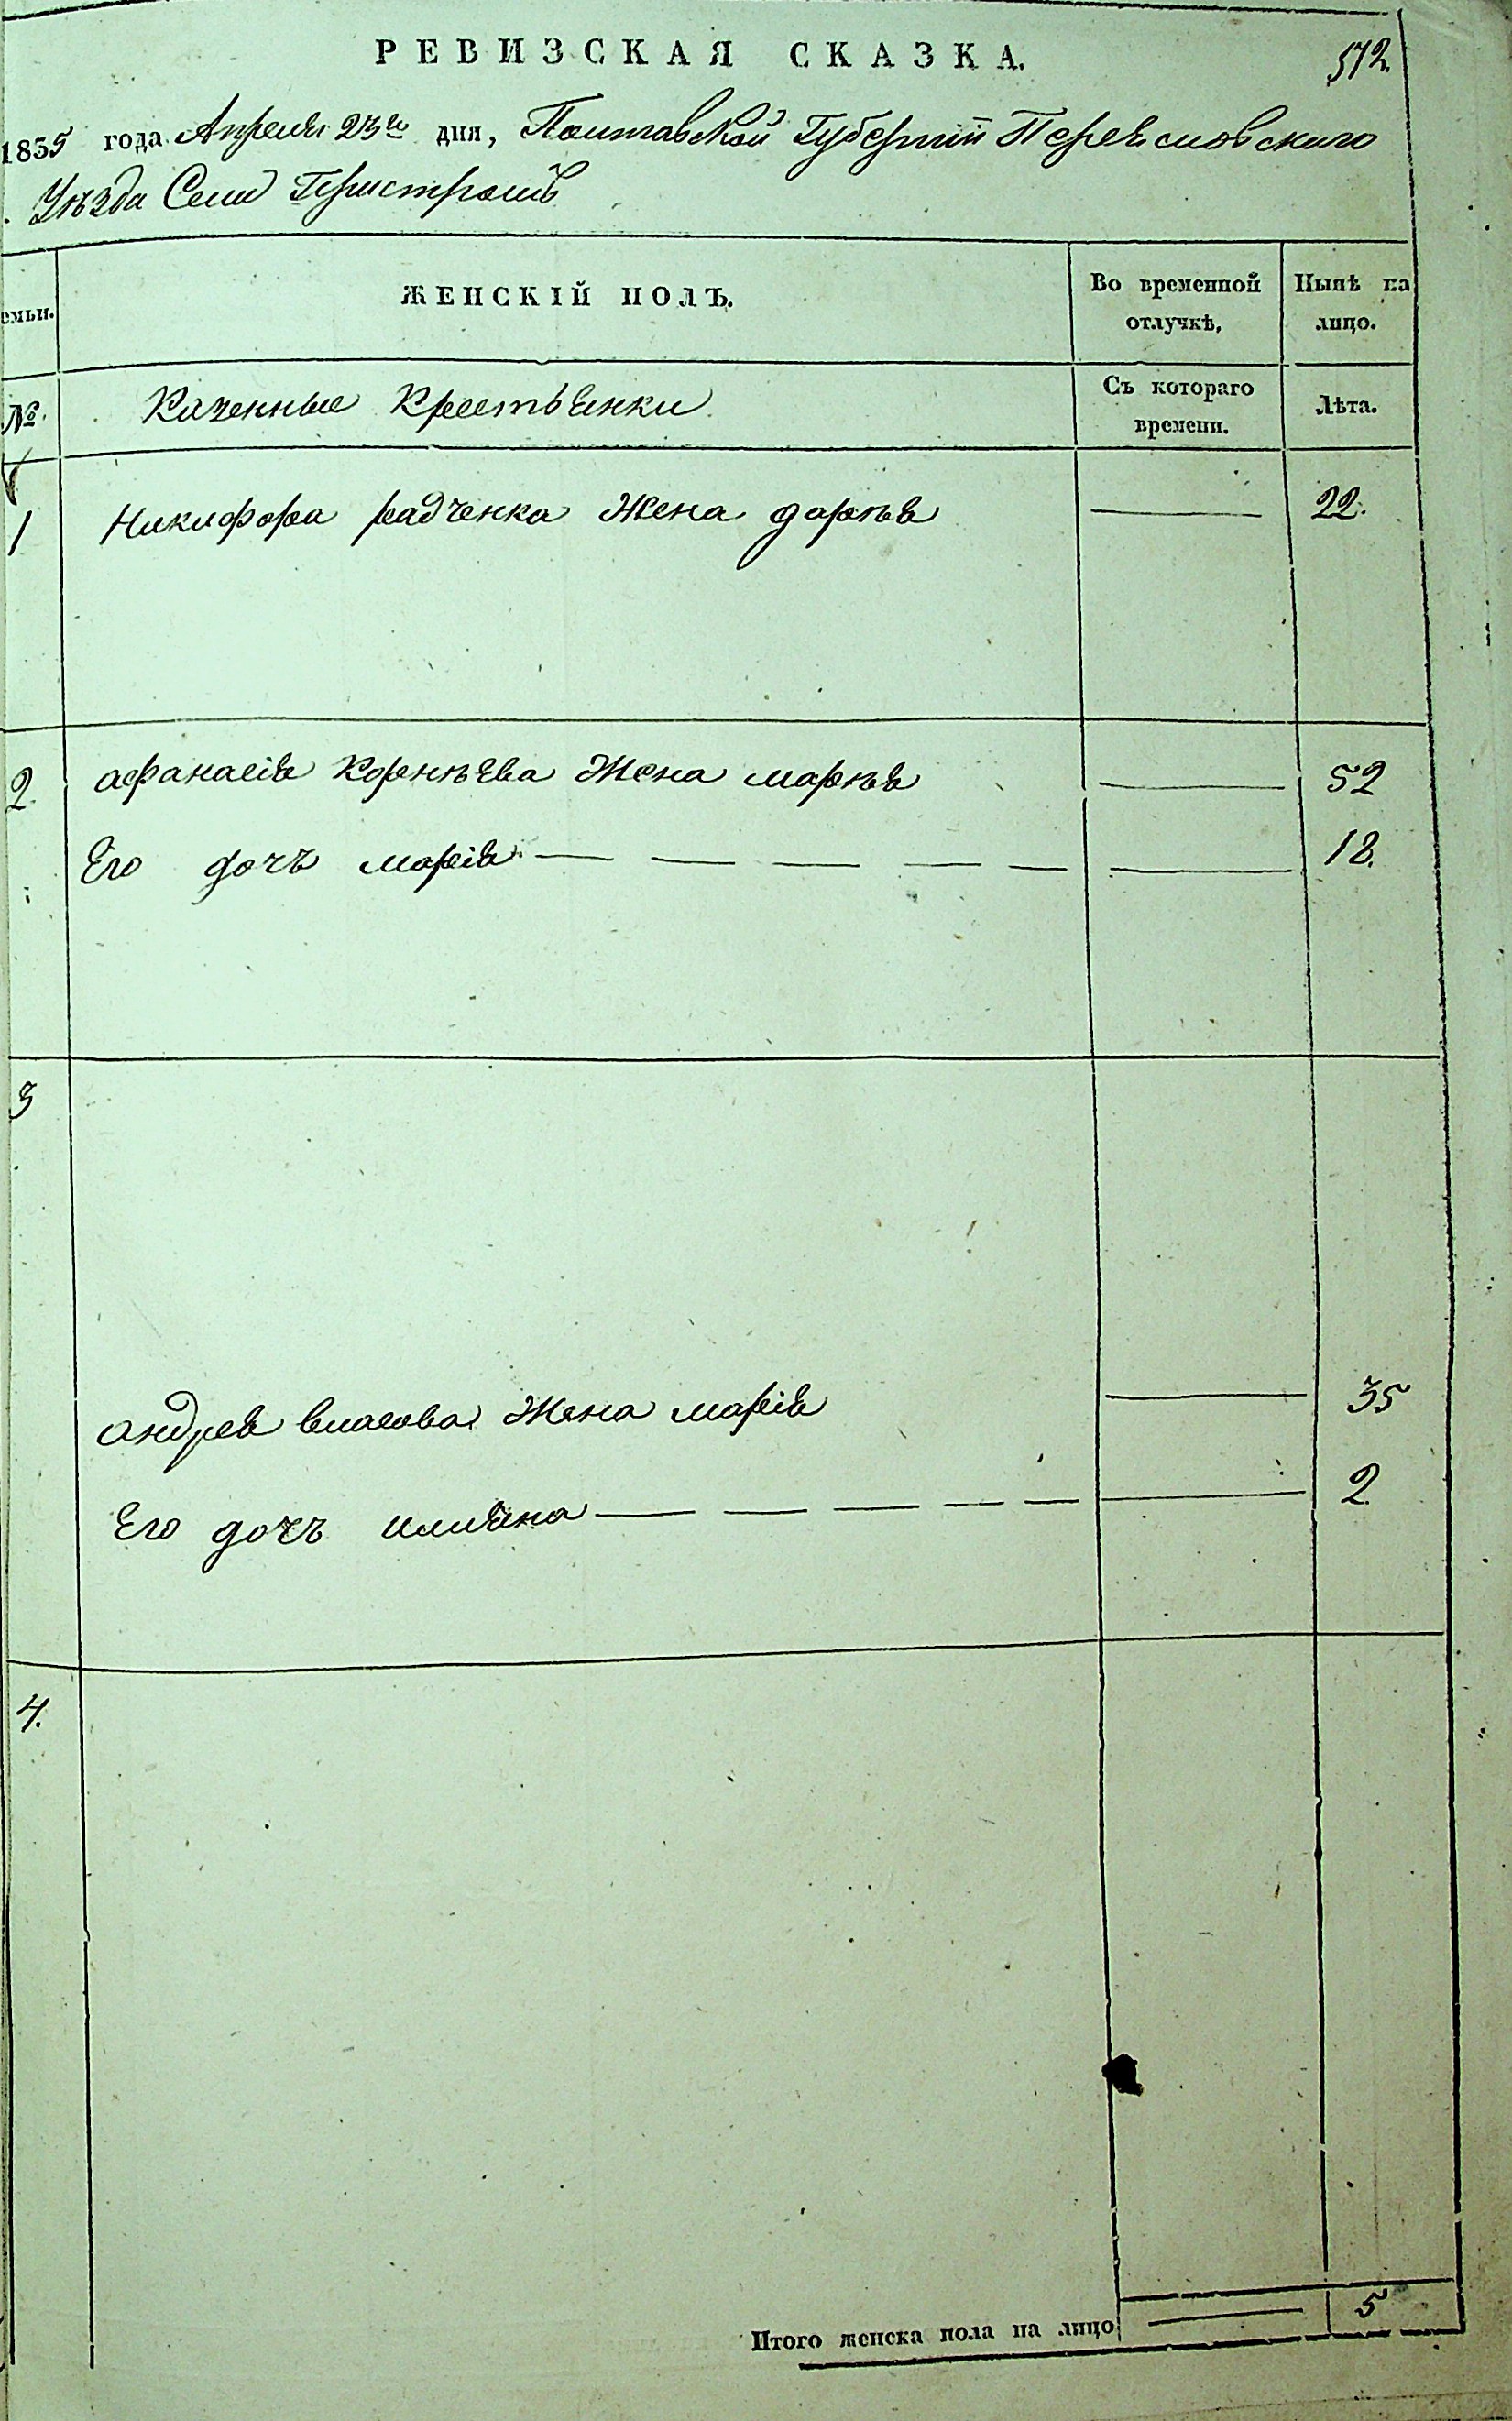 РЕВИЗСКАЯ СКАЗКА.
572.
1835 года Апреля 23го дня, Полтавской Губернии Переясловского
Уѣзда Села Пристромъ
емьи.
ЖЕНСКІЙ ПОЛЪ.
Во временной отлучкѣ,
Нынѣ на лицо.
№
Казенные Крестьянки
Съ котораго времени.
Лѣта.
1 Никифора радченка Жена даръя 22.
2. афанасія Корнѣева Жена маръя 52
Его дочъ марія 18.
3
андрея власова Жена марія 35
Его дочъ 2
4.
Итого женска пола на лицо 5